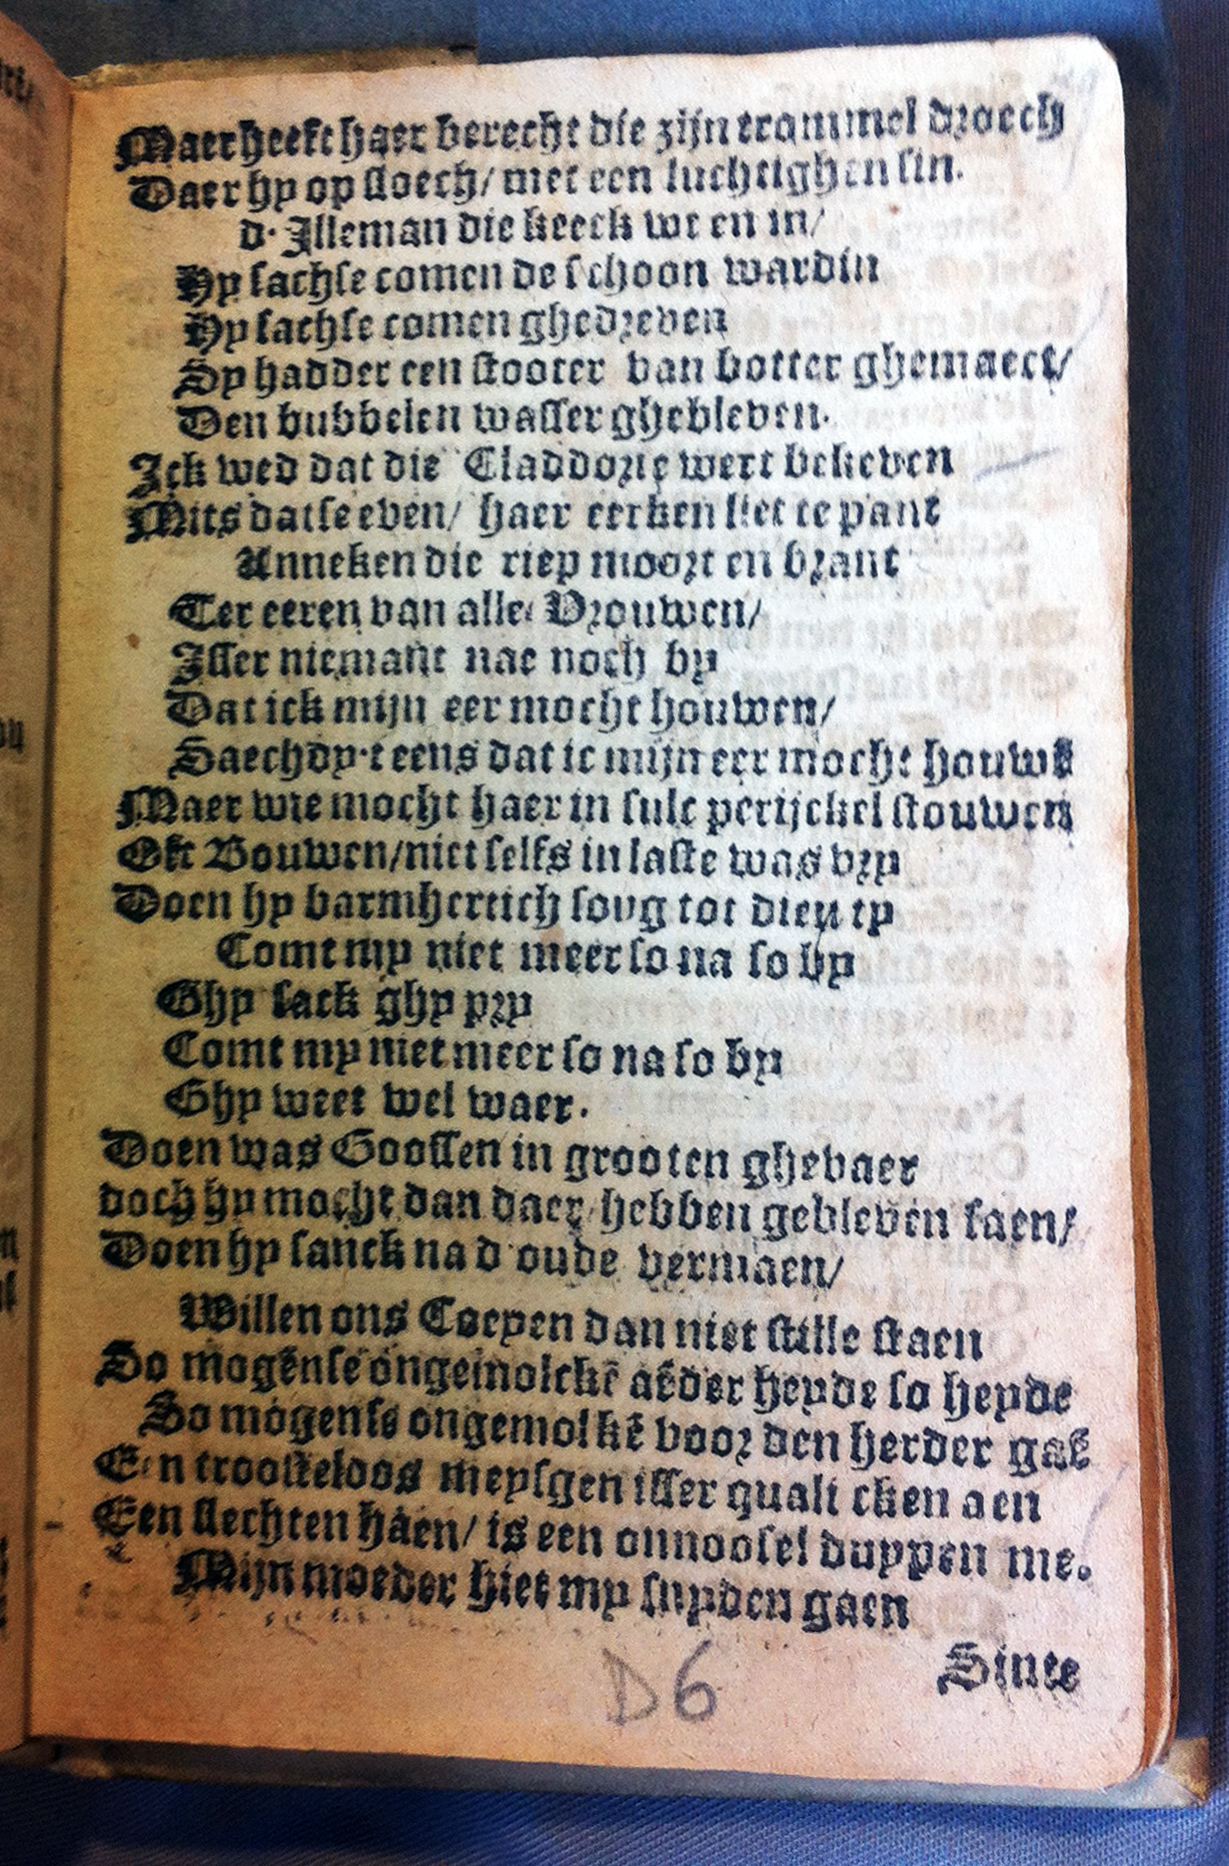 Maer heeft haer berecht die zijn trommel droech
Daer hy op sloech/ met een luchtighen sin.
d. Illeman die keeck we en in/
Hy sachse comen de schoon wardin
Hy sachse comen ghedreven
Sy hadder een stooter van botter ghemaect/
Den bubbelen wasser ghebleven.
Ick wed dat die Claddorie wert bekeven
Mits datse even/ haer eerken liet te pant
Anneken die riep moort en brant
Ter eeren van alle Vrouwen/
Isser niemant nae noch by
Dat ick mijn eer mocht houwen/
Saechdy.t eens dat ic mijn eer mocht houwē
Maer wie mocht haer in sulc perijckel stouwen
Oft Bouwen/niet selfs in laste was vry
Doen hy barmhertich song tot dien ty
Comt my niet meer so na so by
Ghy sack ghy pry
Comt my niet meer so na so by
Ghy weet wel waer.
Doen was Goossen in grooten ghevaer
doch hy mocht dan daer hebben gebleven saen/
Doen hy sanck na d oude vermaen/
Willen ons Coeyen dan niet stille staen
So mogēnse ongemolckē aēder heyde so heyde
So mogense ongemolkē voor den herder gaē
Een troosteloos meysgen isser quali cken aen
Een slechten haen/ is een onnoosel duppen me.
Mijn moeder hiet my snyden gaen
Sinte
D6